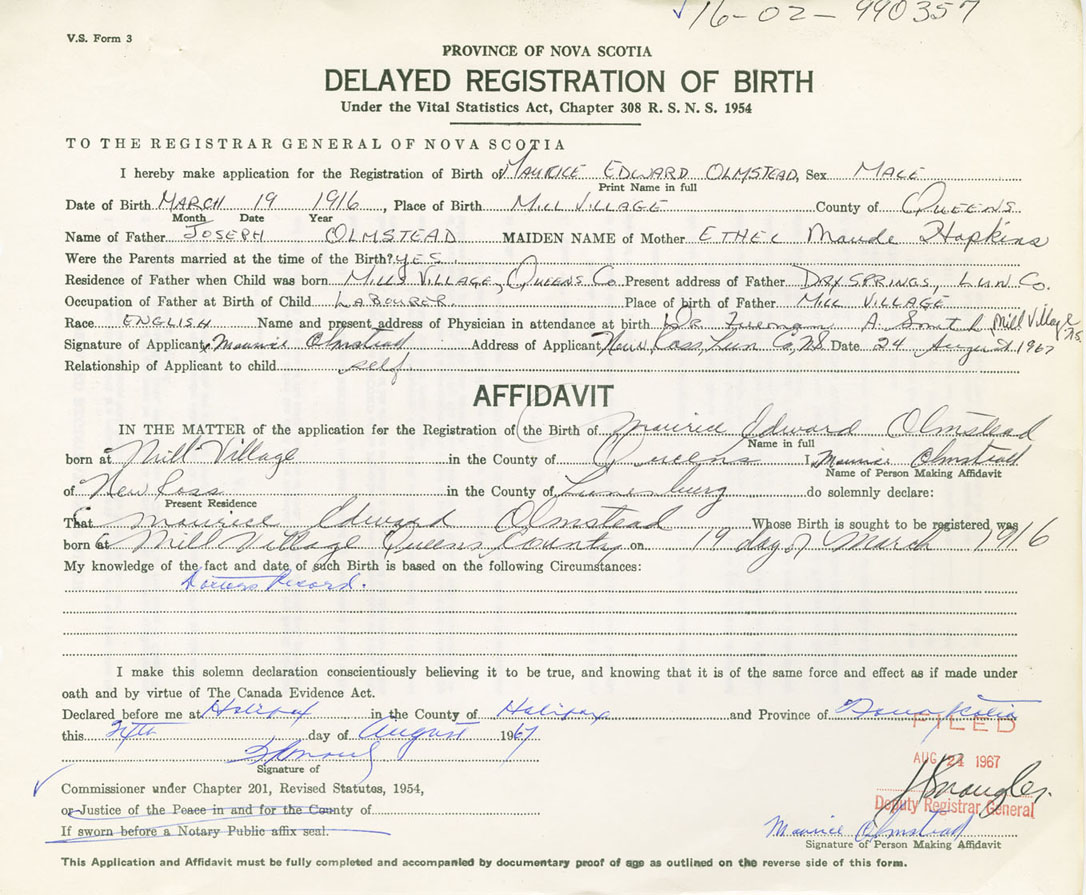 16-02-990357
V.S. Form 3
PROVINCE OF NOVA SCOTIA
DELAYED REGISTRATION OF BIRTH
Under the Vital Statistics Act, Chapter 308 R. S. N. S. 1954
TO THE REGISTRAR GENERAL OF NOVA SCOTIA
I hereby make application for the Registration of Birth of MAURICE EDWARD OLMSTEAD, Sex MALE
Print Name in full
Date of Birth MARCH 19 1916, Place of Birth MILL VILLAGE County of QUEENS
Month Date Year
Name of Father JOSEPH OLMSTEAD MAIDEN NAME of Mother ETHEL Maude Hopkins
Were the Parents married at the time of the Birth? YES
Residence of Father when Child was born MILLS VILLAGE, QUEENS Co. Present address of Father DRY SPRINGS, LUN Co.
Occupation of Father at Birth of Child LABOURER Place of birth of Father MILL VILLAGE
Race ENGLISH Name and present address of Physician in attendance at birth Dr A. Smith Mill Village N.S.
Signature of Applicant Maurice Olmstead Address of Applicant New Ross, Lun Co, NS Date 24 August 1967
Relationship of Applicant to child self
AFFIDAVIT
IN THE MATTER of the application for the Registration of the Birth of Maurice Edward Olmstead
Name in full
born at Mill Village in the County of Queens I, Maurice Olmstead
Name of Person Making Affidavit
of New Ross in the County of Lunenburg do solemnly declare:
Present Residence
That Maurice Edward Olmstead Whose Birth is sought to be registered was
born at Mill Village Queens County on 19 day of March 1916
My knowledge of the fact and date of such Birth is based on the following Circumstances:
Doctors Record.
I make this solemn declaration conscientiously believing it to be true, and knowing that it is of the same force and effect as if made under
oath and by virtue of The Canada Evidence Act.
Declared before me at Halifax in the County of Halifax and Province of Nova Scotia
FILED
this day of August 1967
AUG 24 1967
Signature of
Commissioner under Chapter 201, Revised Statutes, 1954,
or Justice of the Peace in and for the County of
Deputy Registrar General
If sworn before a Notary Public affix seal.
Maurice Olmstead
Signature of Person Making Affidavit
This Application and Affidavit must be fully completed and accompanied by documentary proof of age as outlined on the reverse side of this form.